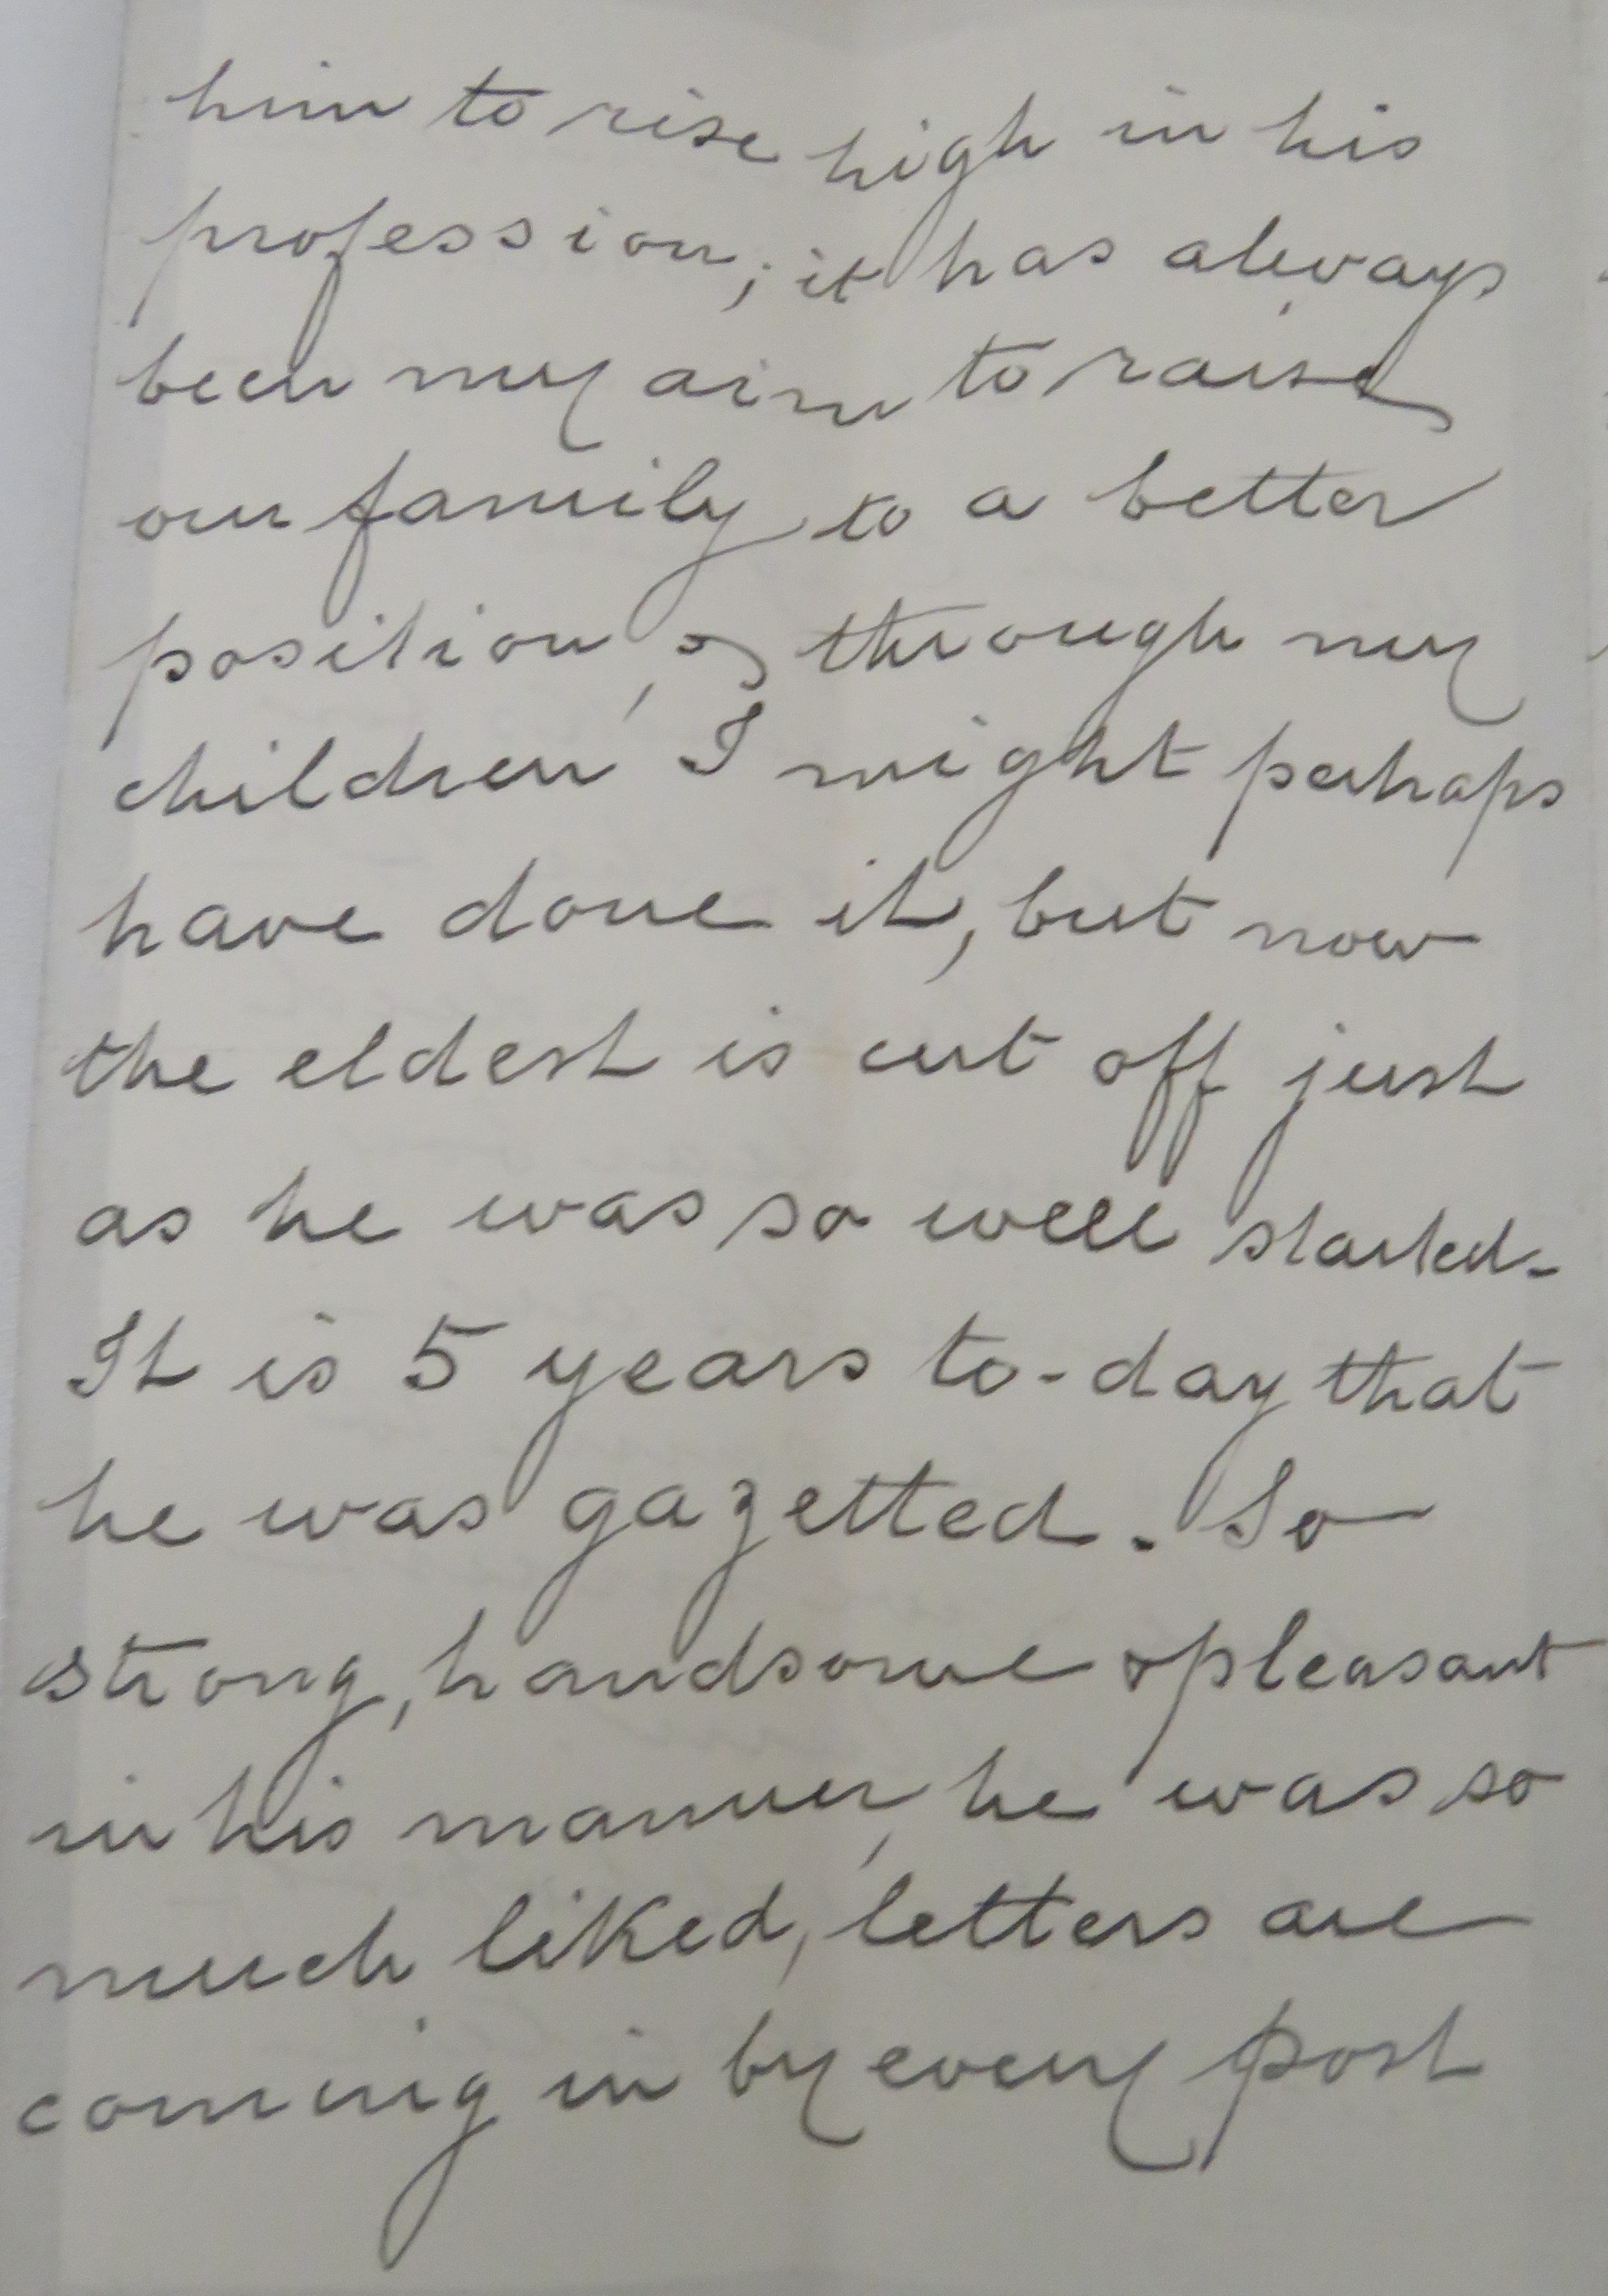 him to rise high in his
profession; it has always
been my aim to raise
our family to a better
position, & through my
children I might perhaps
have done it, but now
the eldest is cut off just
as he was so well started.
It is 5 years to-day that
he was gazetted. So
strong, handsome & pleasant
in his manner, he was so
much liked, letters are
coming in by every post